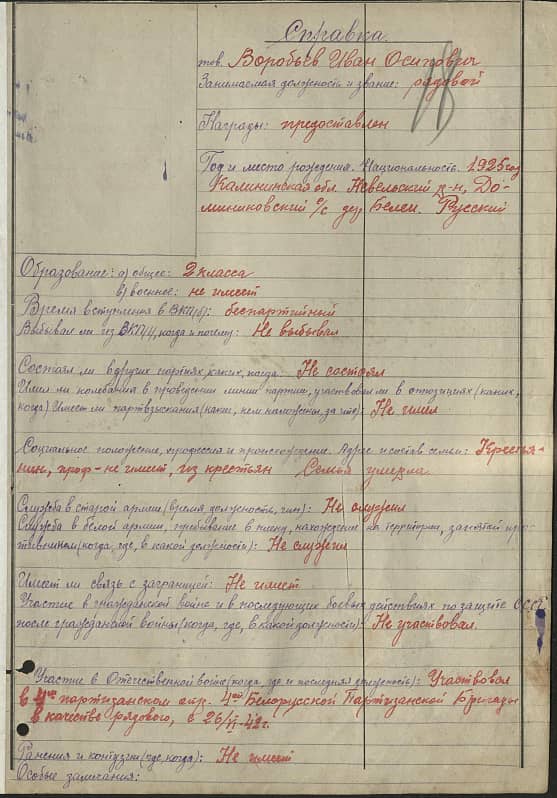 Справка.
тов. Воробьев Иван Осипович
Занимаемая должность и звание: рядовой
Награды: предоставлен
Год и место рождения. Национальность. 1925 год
Калининская обл. Невельский р-н, До-
миниковский с/с дер. Белеи. Русский
Образование: а) общее: 2 класса
в) военное: не имеет
Время вступления в ВКП(б): беспартийный
Выбывал ли из ВКП(б), когда и почему: Не выбывал
Состоял ли в других партиях, каких, когда: Не состоял
Имел ли колебания в проведении линии партии, участвовал ли в оппозициях (каких,
когда) Имеет ли партвзыскания (какие, кем наложены, за что): Не имел.
Социальное положение, профессия и происхождение. Адрес и состав семьи: Крестья-
нин, проф-не имеет, из крестьян Семья умерла.
Служба в старой армии (время, должность, чин): Не служил
Служба в белой армии, пребывание в плену, нахождение на территории, занятой про-
тивником (когда, где, в какой должности): Не служил
Имеет ли связь с заграницей: Не имеет
Участие в гражданской войне и в последующих боевых действиях по защите СССР
после гражданской войны (когда, где, в какой должности): Не участвовал.
Участие в Отечественной войне (когда, где и последняя должность): Участвовал
в партизанском отр. 4ой Белорусской Партизанской Бригады
в качестве рядового, с 26/VI-42г.
Ранения и контузии (где, когда): Не имеет
Особые замечания: